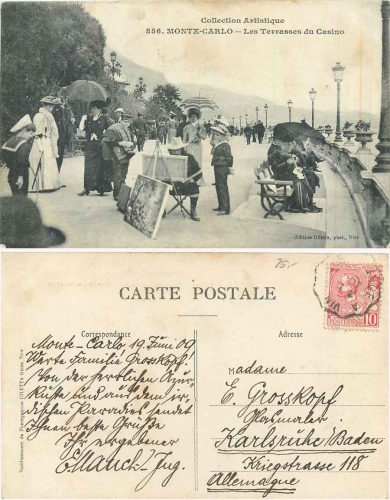 Collection Artistique
836. MONTE-CARLO — Les Terrasses du Casino
Edition Giletta, phot., Nice
25.-
CARTE POSTALE
Correspondance
Adresse
10
Monte-Carlo 19 Juni 09
Werte Familie Grosskopf.
Von der herrlichen Azur-
küste und aus dem ir-
dischen Paradies sendet
Ihnen beste Grüße
Ihr ergebener
EMauch-Jug.
Madame
E. Grosskopf
Glasmaler
Karlsruhe/Baden
Kriegstrasse 118
Allemagne